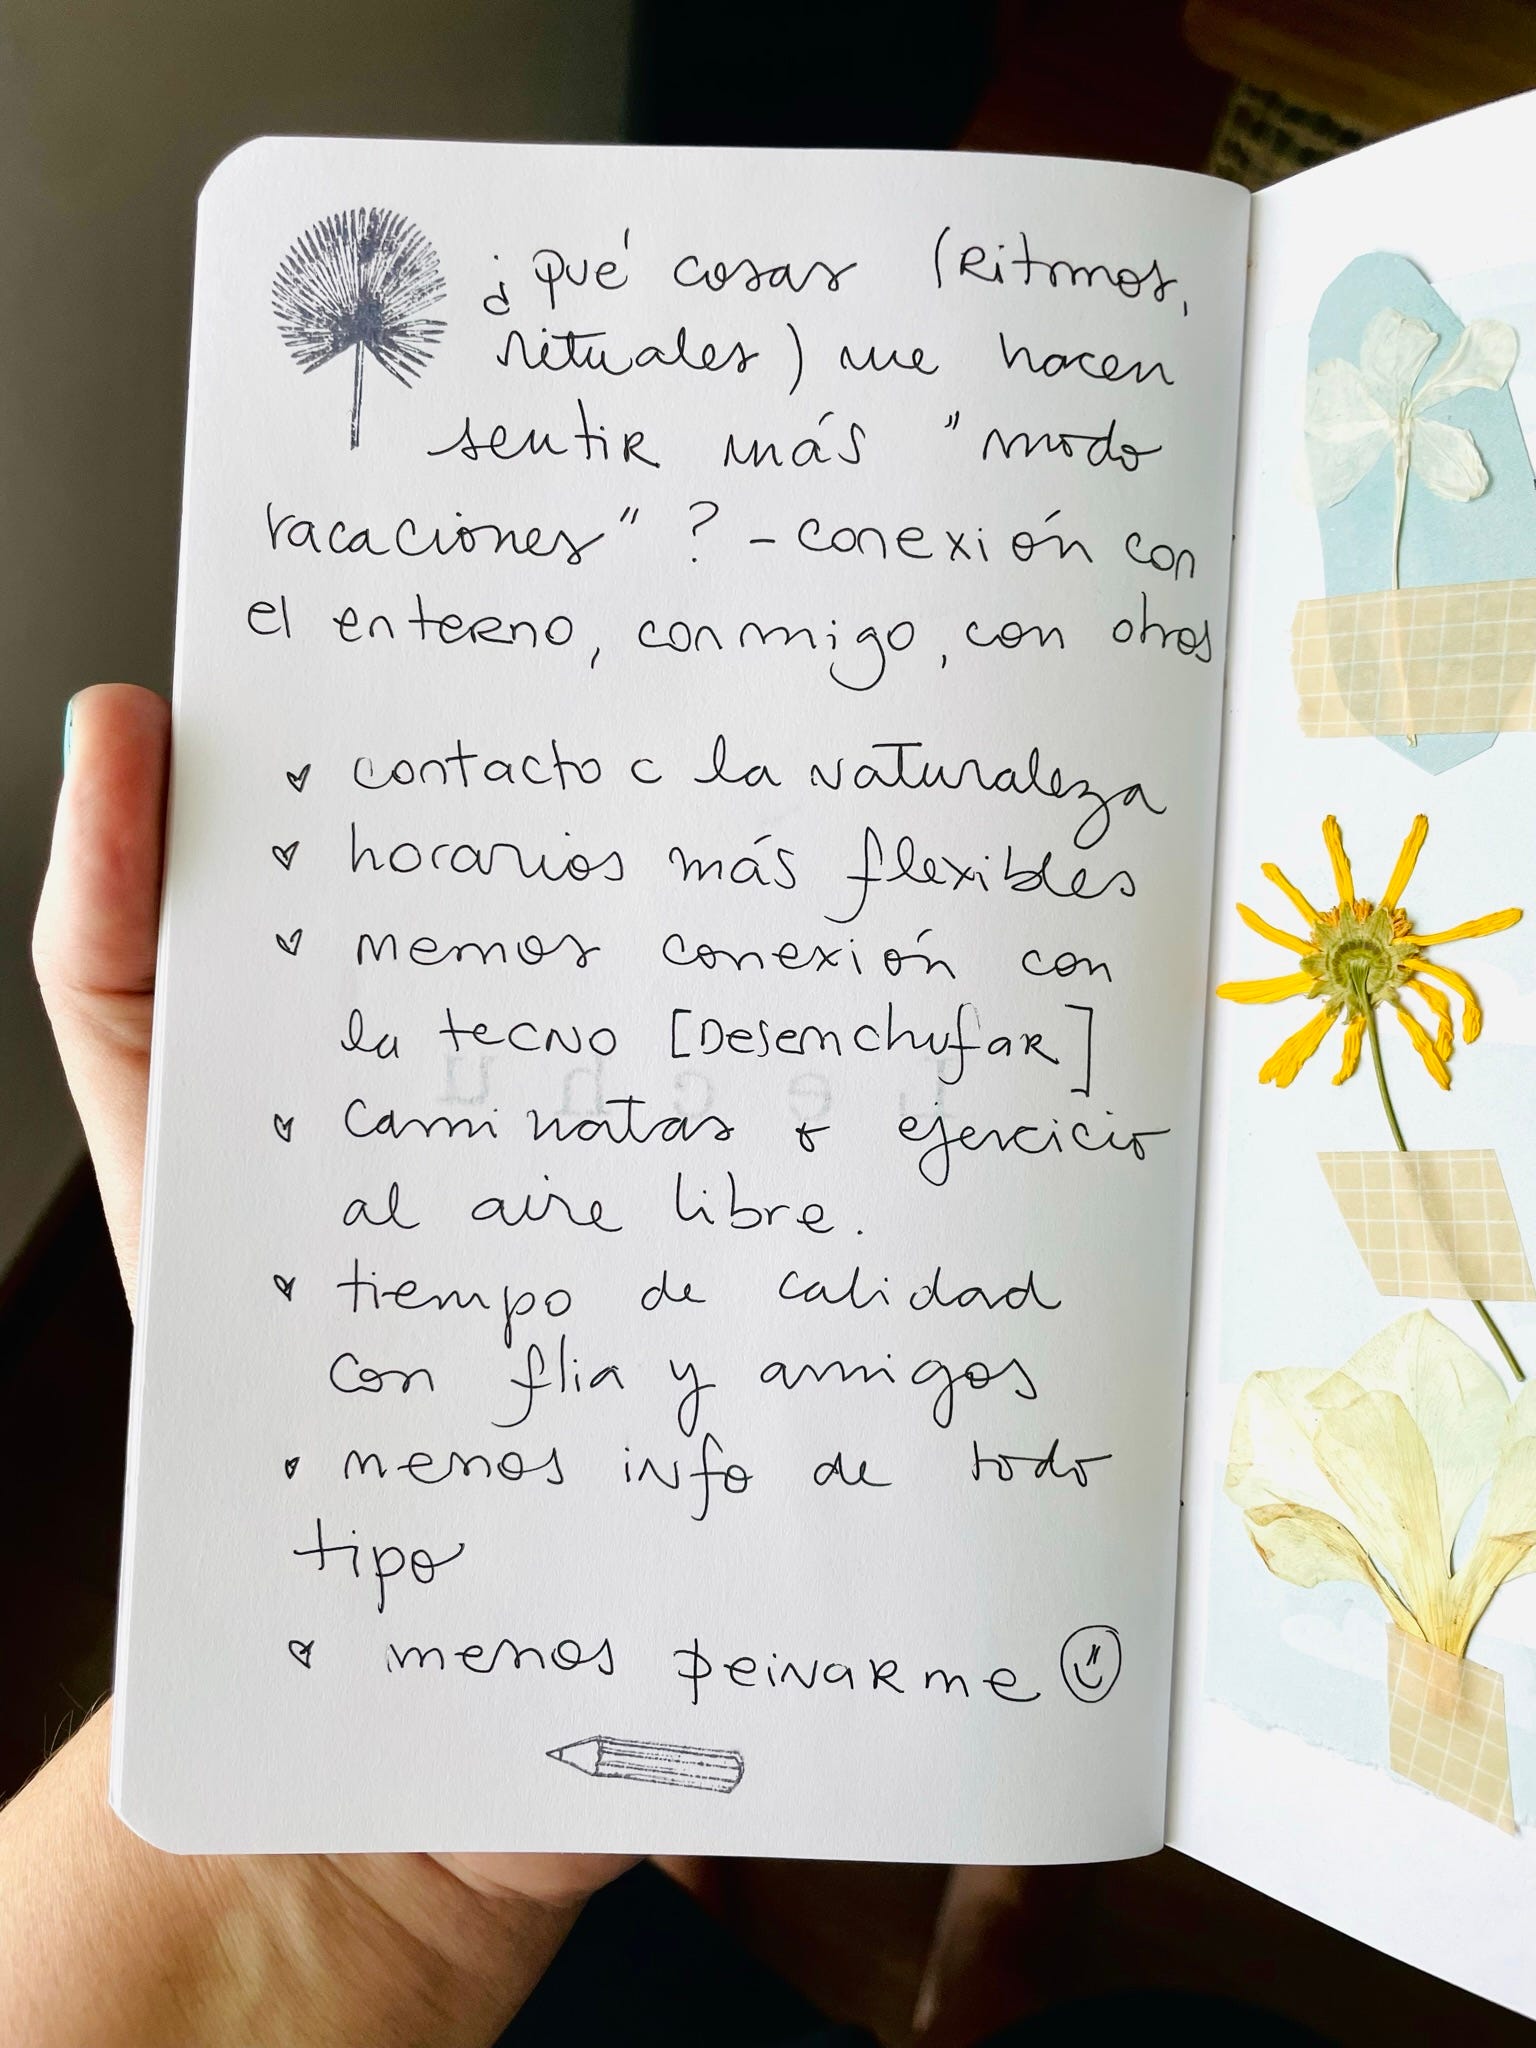 ¿Qué cosas (Ritmos,
rituales) me hacen
sentir más "modo
vacaciones"? - conexión con
el enterno, conmigo, con otros
contacto c la naturaleza
horarios más flexibles
memos conexión con
la tecno [Desenchufar]
caminatas o ejercicio
al aire libre.
tiempo de calidad
con flia y amigos
menos info de todo
tipo
menos peinarme